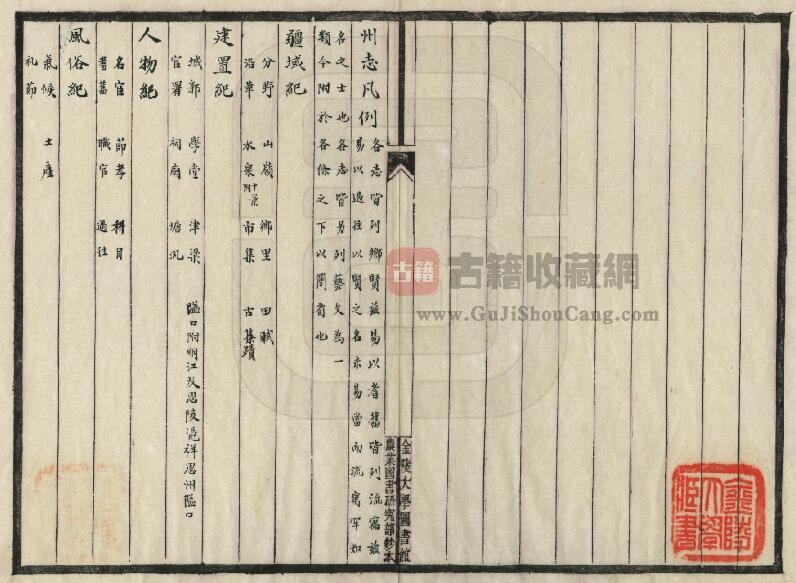 州志凡例
各志皆列鄉賢茲易以耆舊皆列流寓茲
易以過往以賢之名未易當而流寓罕知
名之士也各志皆另列藝文為一
類今附於各條之下以省也
疆域紀
分野 山嶺 鄉里 田賦
沿革 水泉附十景 市集 古集蹟
建置紀
城郭 學堂 津梁 隘口附明江及思陵憑祥思州隘口
官署 祠廟 塘汛
人物紀
名宦 節孝 科目
耆舊 職官 過往
風俗紀
氣候 土產
礼節
金陵大學圖書館
農業圖書研究部鈔本
古籍
古籍收藏網
www.GuJiShouCang.com